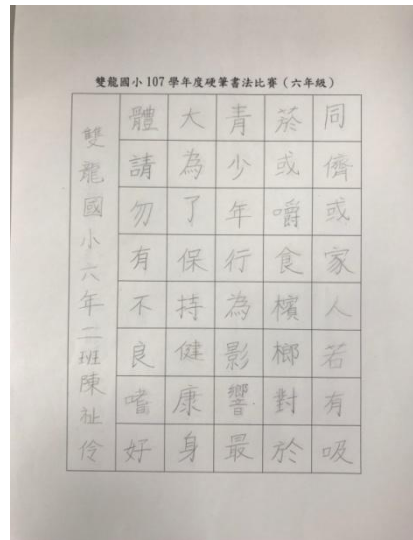 雙龍國小107學年度硬筆書法比賽（六年級）
同儕或家人若有吸
菸或嚼食檳榔對於
青少年行為影響最
大為了保持健康身
體請勿有不良嗜好
雙龍國小六年二班陳祉伶